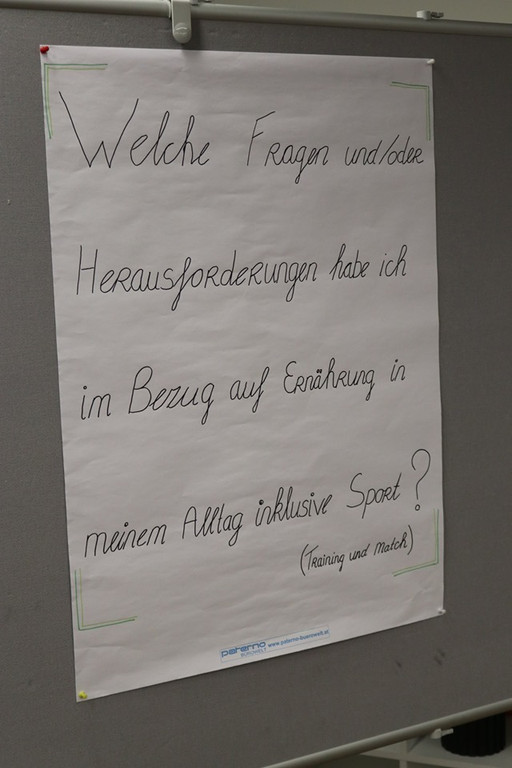 Welche Fragen und/oder
Herausforderungen habe ich
im Bezug auf Ernährung in
meinem Alltag inklusive Sport?
(Training und Match)
paterno
BÜROWELT
www.paterno-buerowelt.at